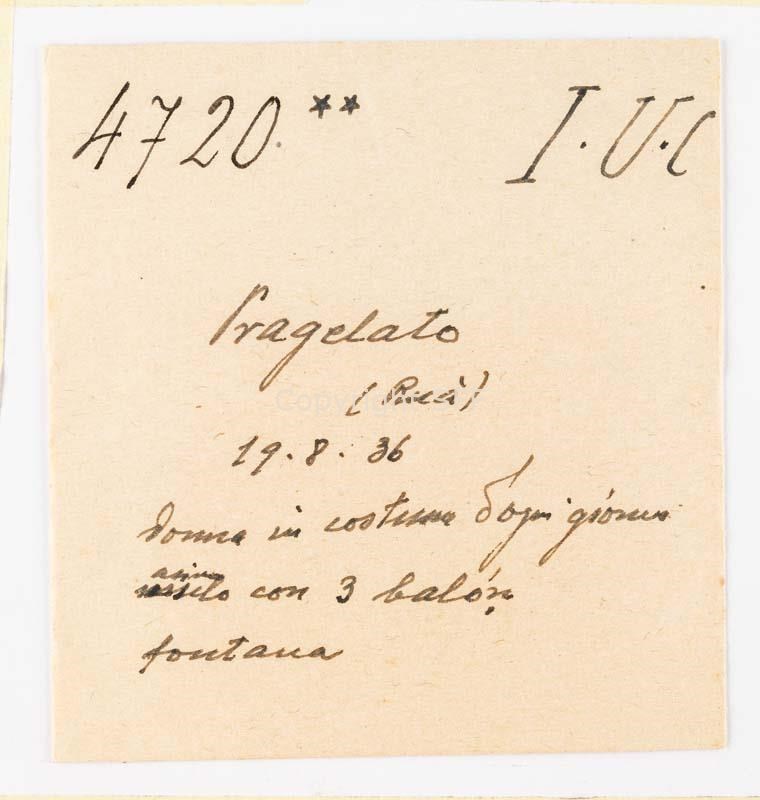 4720.** I.U.C
Pragelato
(Rucà)
19.8.36
donna in costume d'ogni giorno
asino con 3 balón
fontana